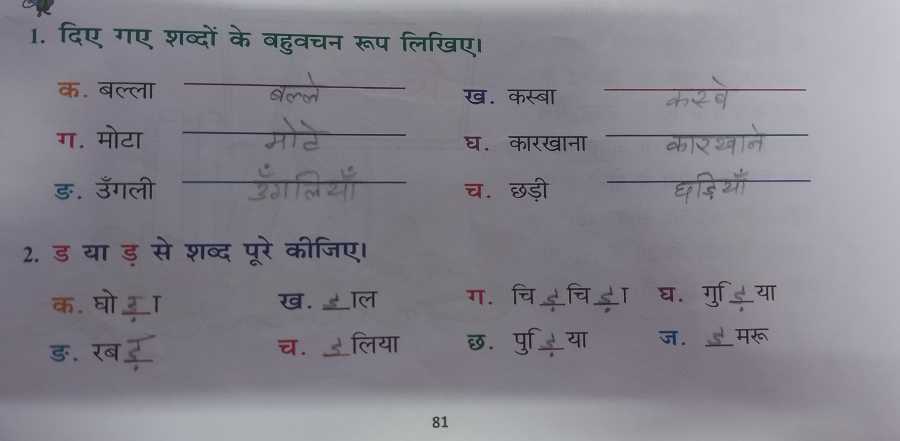 1. दिए गए शब्दों के बहुवचन रूप लिखिए।
क. बल्ला बल्ले ख. कस्बा कस्बे
ग. मोटा मोटे घ. कारखाना कारखाने
ङ. उँगली उँगलियाँ च. छड़ी छड़ियाँ
2. ड या ड़ से शब्द पूरे कीजिए।
क. घोड़ा ख. डाल ग. चिड़चिड़ा घ. गुड़िया
ङ. रबड़ च. डलिया छ. पुड़िया ज. डमरू
81